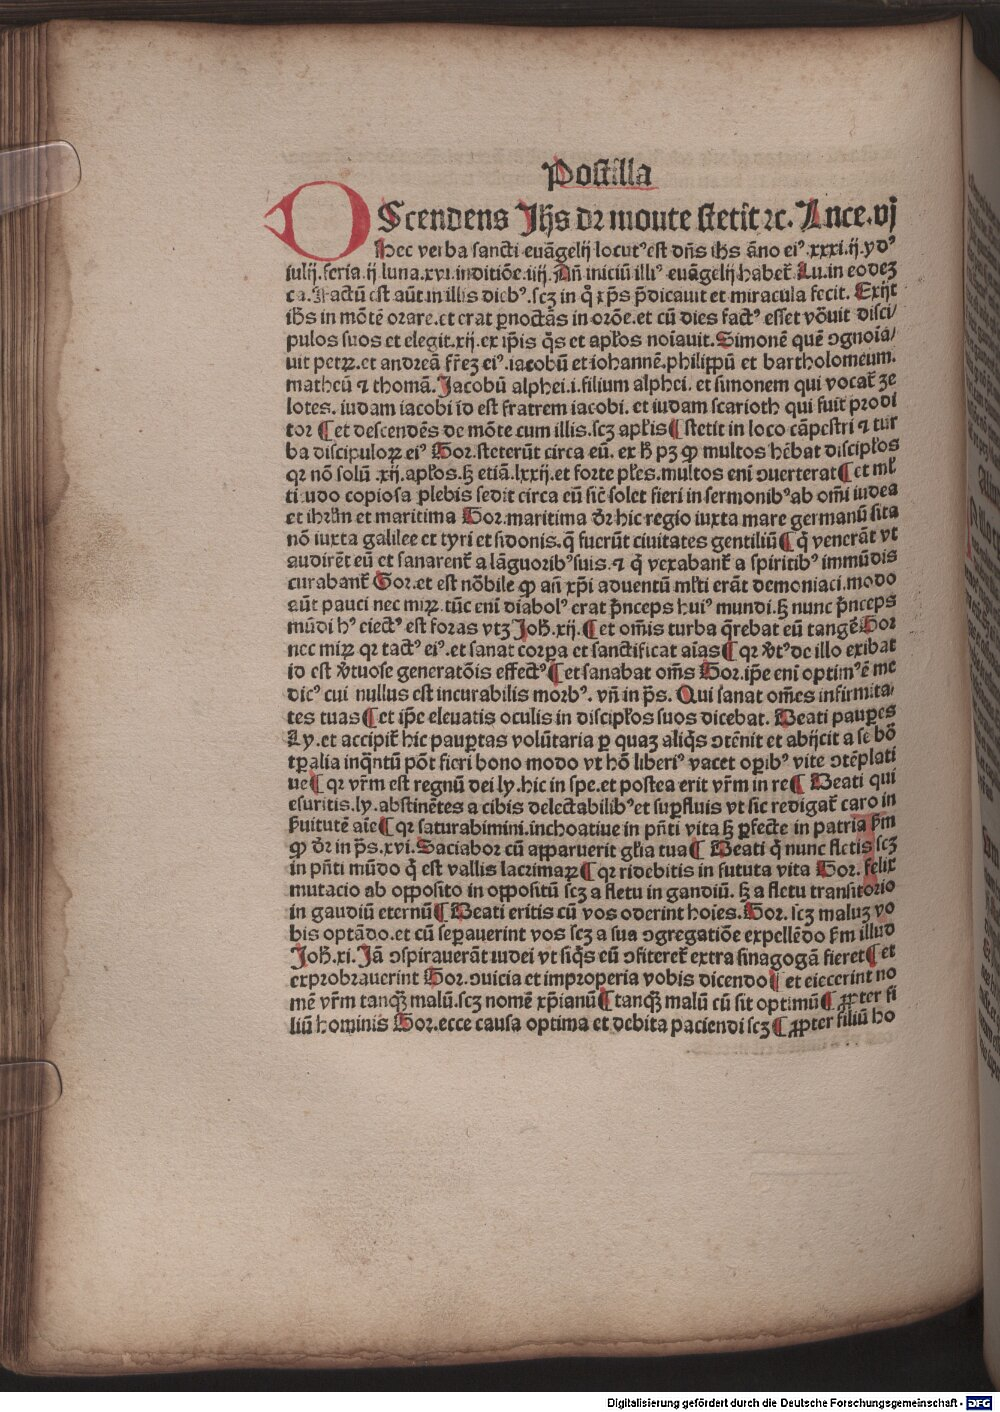 Postilla
DScendens Jhs dr moute stetit ⁊c. Luce.vj
Hec verba sancti euāgelij locutꝰ est dn̄s ihs āno eiꝰ .xxxi.ij.ydꝰ
iulij.feria.ij luna.xvi.inditiōe.iiij. An̄ iniciū illiꝰ euāgelij habet᷑. Lu.in eodeꝫ
ca. Factū est aūt in illis diebꝰ.scꝫ in q̄ xp̄s p̄dicauit et miracula fecit. Exijt
ihs in mōtē orare.et erat ꝑnoctās in orōe.et cū dies factꝰ esset vōuit disci/
pulos suos et elegit.xij.ex ip̄is q̄s et apłos noīauit. Simonē quē ꝯgnoīa/
uit petꝝ.et andreā fr̄eꝫ eiꝰ.iacobū et iohannē.philippū et bartholomeum.
matheū ⁊ thomā. Jacobū alphei.i.filium alphei. et simonem qui vocat᷑ ze
lotes. iudam iacobi id est fratrem iacobi. et iudam scarioth qui fuit prodi
tor ¶ et descendēs de mōte cum illis.scꝫ apłis ¶ stetit in loco cāpestri ⁊ tur
ba discipuloꝝ eiꝰ Gor.steterūt circa eū. ex h̄ pꝫ ꝙ multos hēbat discipłos
qꝛ nō solū .xij.apłos.sꝫ etiā.lxxij.et forte płes.multos eni ꝯuerterat ¶ et mł
titudo copiosa plebis sedit circa eū sic̄ solet fieri in sermonibꝰ ab om̄i iudea
et ihrl̄m et maritima Gor.maritima dr̄ hic regio iuxta mare germanū sita
nō iuxta galilee et tyri et sidonis.q̄ fuerūt ciuitates gentiliū ¶ q̄ venerāt vt
audirēt eū et sanarent᷑ a lāguoribꝰ suis.⁊ q̄ vexabant᷑ a spiritibꝰ immūdis
curabant᷑ Gor.et est nōbile ꝙ an̄ xp̄i aduentū młti erāt demoniaci.modo
aūt pauci nec miꝝ.tūc eni diabolꝰ erat p̄nceps huiꝰ mundi.sꝫ nunc p̄nceps
mūdi hꝰ eiectꝰ est foras vtꝫ Joh̄.xij. ¶ et om̄is turba q̄rebat eū tangē Gor
nec miꝝ qꝛ tactꝰ eiꝰ.et sanat corꝑa et sanctificat aīas ¶ qꝛ v̄tꝰ de illo exibat
id est v̄tuose generatōis effectꝰ ¶ et sanabat om̄s Gor.ip̄e eni optimꝰ ē me
dicꝰ cui nullus est incurabilis morbꝰ. vn̄ in p̄s. Qui sanat om̄es infirmita/
tes tuas ¶ et ip̄e eleuatis oculis in discipłos suos dicebat. Beati pauꝑes
Ly.et accipit᷑ hic pauꝑtas volūtaria ꝑ quaꝫ aliq̄s ꝯtēnit et abijcit a se bō
tꝑalia inq̄ntū pōt fieri bono modo vt hō liberiꝰ vacet oꝑibꝰ vite ꝯtēplati
ue ¶ qꝛ vr̄m est regnū dei ly.hic in spe.et postea erit vr̄m in re ¶ Beati qui
esuritis.ly.abstinētes a cibis delectabilibꝰ et suꝑfluis vt sic redigat᷑ caro in
ẜuitutē aīe ¶ qꝛ saturabimini.inchoatiue in pn̄ti vita sꝫ ꝑfecte in patria ẜm
ꝙ dr̄ in p̄s.xvi. Saciabor cū apparuerit głia tua ¶ Beati q̄ nunc fletis scꝫ
in pn̄ti mūdo q̄ est vallis lacrimaꝝ ¶ qꝛ ridebitis in fututa vita Gor. felix
mutacio ab opposito in oppositū scꝫ a fletu in gandiū. sꝫ a fletu transitorio
in gaudiū eternū ¶ Beati eritis cū vos oderint hoīes. Gor. scꝫ maluꝫ vo
bis optādo.et cū seꝑauerint vos scꝫ a sua ꝯgregatiōe expellēdo ẜm illud
Joh̄.xi. Jā ꝯspirauerāt iudei vt siq̄s eū ꝯfiteret᷑ extra sinagogā fieret ¶ et
exprobrauerint Gor.ꝯuicia et improperia vobis dicendo ¶ et eiecerint no
mē vr̄m tanqȝ malū.scꝫ nomē xp̄ianū ¶ tanqȝ malū cū sit optimū ¶ ꝓpter fi
liū hominis Gor.ecce causa optima et debita paciendi scꝫ ¶ ꝓpter filiū ho
Digitalisierung gefördert durch die Deutsche Forschungsgemeinschaft - DFG